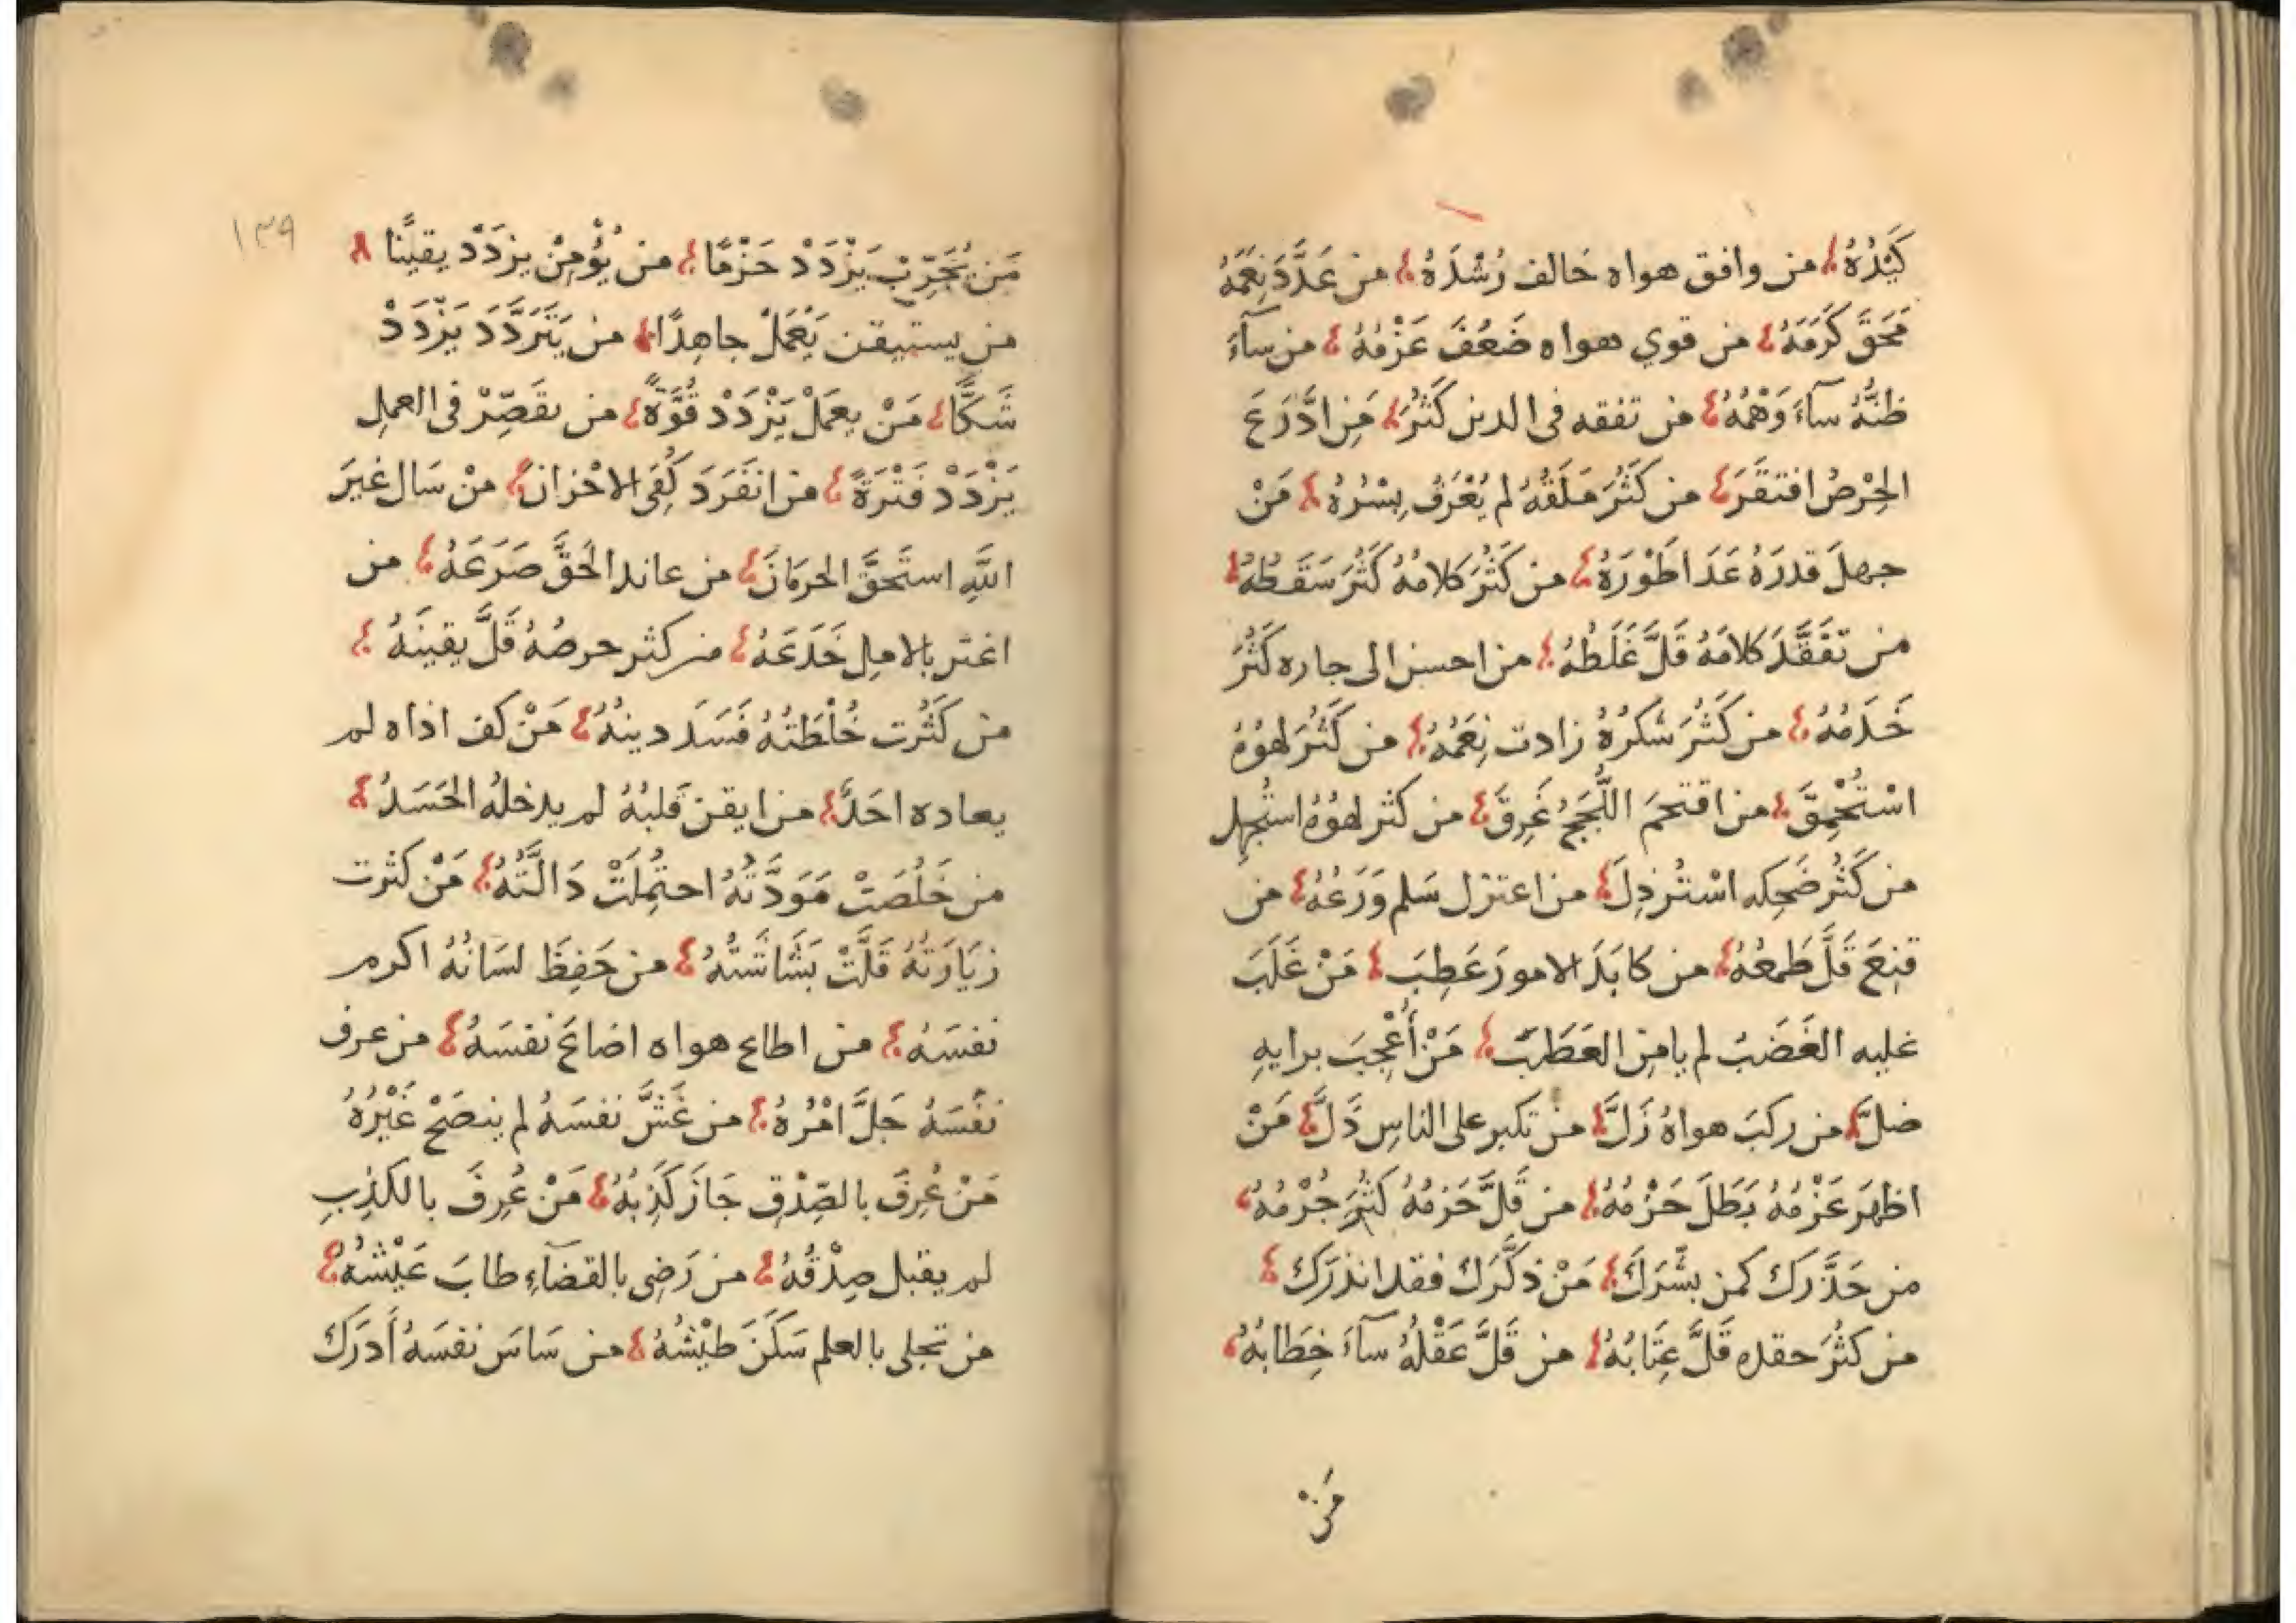 كَيْدُهُ من وافق هواه خالف رُشْدَهُ من عَدَّدَ نِعَمَهُ
مَحَقَ كَرَمَهُ من قوي هواه ضَعُفَ عَزْمُهُ من سآءَ
ظنُّهُ سآءَ وَهْمُهُ من تفقه فى الدين كَثُرَ مَنِ ادَّرَعَ
الحِرْصُ افتقَرَ من كَثُرَ مَلَقُهُ لم يُعْرَفْ بِشْرُهُ مَنْ
جهلَ قدرَهُ عَدَا طَوْرَهُ من كَثُرَ كلامُهُ كَثُرَ سَقَطُهُ
من تفَقَّدَ كلامَهُ قَلَّ غَلَطُهُ من احسن الى جاره كَثُرَ
خَدَمُهُ من كَثُرَ شُكرُهُ زادت نِعَمُهُ من كَثُرَ لهوُهُ
اسْتُحْمِقَ من اقتحمَ اللُّجَجَ غَرِقَ من كثر لهوُهُ استُجهِل
من كَثُرَ ضَحِكه اسْتُرذِلَ من اعتزل سَلم وَرَعُهُ من
قنِعَ قَلَّ طَمعُهُ من كابَدَ الامورَ عَطِبَ مَنْ غَلَبَ
عليه الغَضَبُ لم يامنِ العَطَبَ مَنْ أُعْجِبَ برايهِ
ضلَّ من ركبَ هواهُ زَلَّ منْ تكبر على الناسِ ذَلَّ مَنْ
اظهَرَ عَزْمَهُ بَطَلَ حَزْمُهُ من قَلَّ حَزمُهُ كَثُرَ جُرْمُهُ
من حَذَّرَكَ كمن بشَّرَكَ مَنْ ذكَّرَكَ فقد انذرَكَ
من كثُرَ حقده قَلَّ عِتَابُهُ من قَلَّ عَقْلُهُ سآءَ خِطَابُهُ
مَنْ
١٣٩
مَن يُجَرِّبْ يَزْدَدْ حَزْمًا من يُؤْمِنْ يزدَدْ يقينًا
من يستيقن يَعْمَلْ جاهِدًا من يَتَرَدَّدَ يَزْدَدْ
شَكًّا مَنْ يعمَلْ يَزْدَدْ قُوَّةً من يقَصِّرْ فى العملِ
يَزْدَدْ فَتْرَةً من انفَرَدَ كُفِىَ الاحْزانَ منْ سَال غيرَ
اللَّهِ استَحقَّ الحرمَانَ من عاند الحَقَّ صَرَعَهُ من
اغتر بالاملِ خَدَعَهُ من كثر حرصُهُ قَلَّ يقينَهُ
من كَثُرت خُلْطَتُهُ فَسَدَ دينُهُ مَنْ كف اذاه لم
يعاده احَدٌ من ايقن قَلبُهُ لم يدخلهُ الحَسَدُ
من خَلُصَتْ مَوَدَّتُهُ احتُمِلَتْ دَالَّتُهُ مَنْ كثرت
زيَارَتُهُ قَلَّتْ بَشَاشَتُهُ من حَفِظَ لسَانَهُ اكرم
نفسَهُ من اطاع هواه اضاعَ نفسَهُ من عرف
نفسَهُ جَلَّ امْرُهُ من غَشَّ نفسَهُ لم ينصَحْ غَيْرَهُ
مَنْ عُرِفَ بالصِّدْقِ جَازَ كَذِبُهُ مَنْ عُرِفَ بالكذِبِ
لم يقبل صِدْقُهُ من رَضِى بالقضآءِ طابَ عَيْشُهُ
من تحلى بالعلم سَكَنَ طَيْشُهُ من سَاسَ نفسَهُ أَدرَكَ